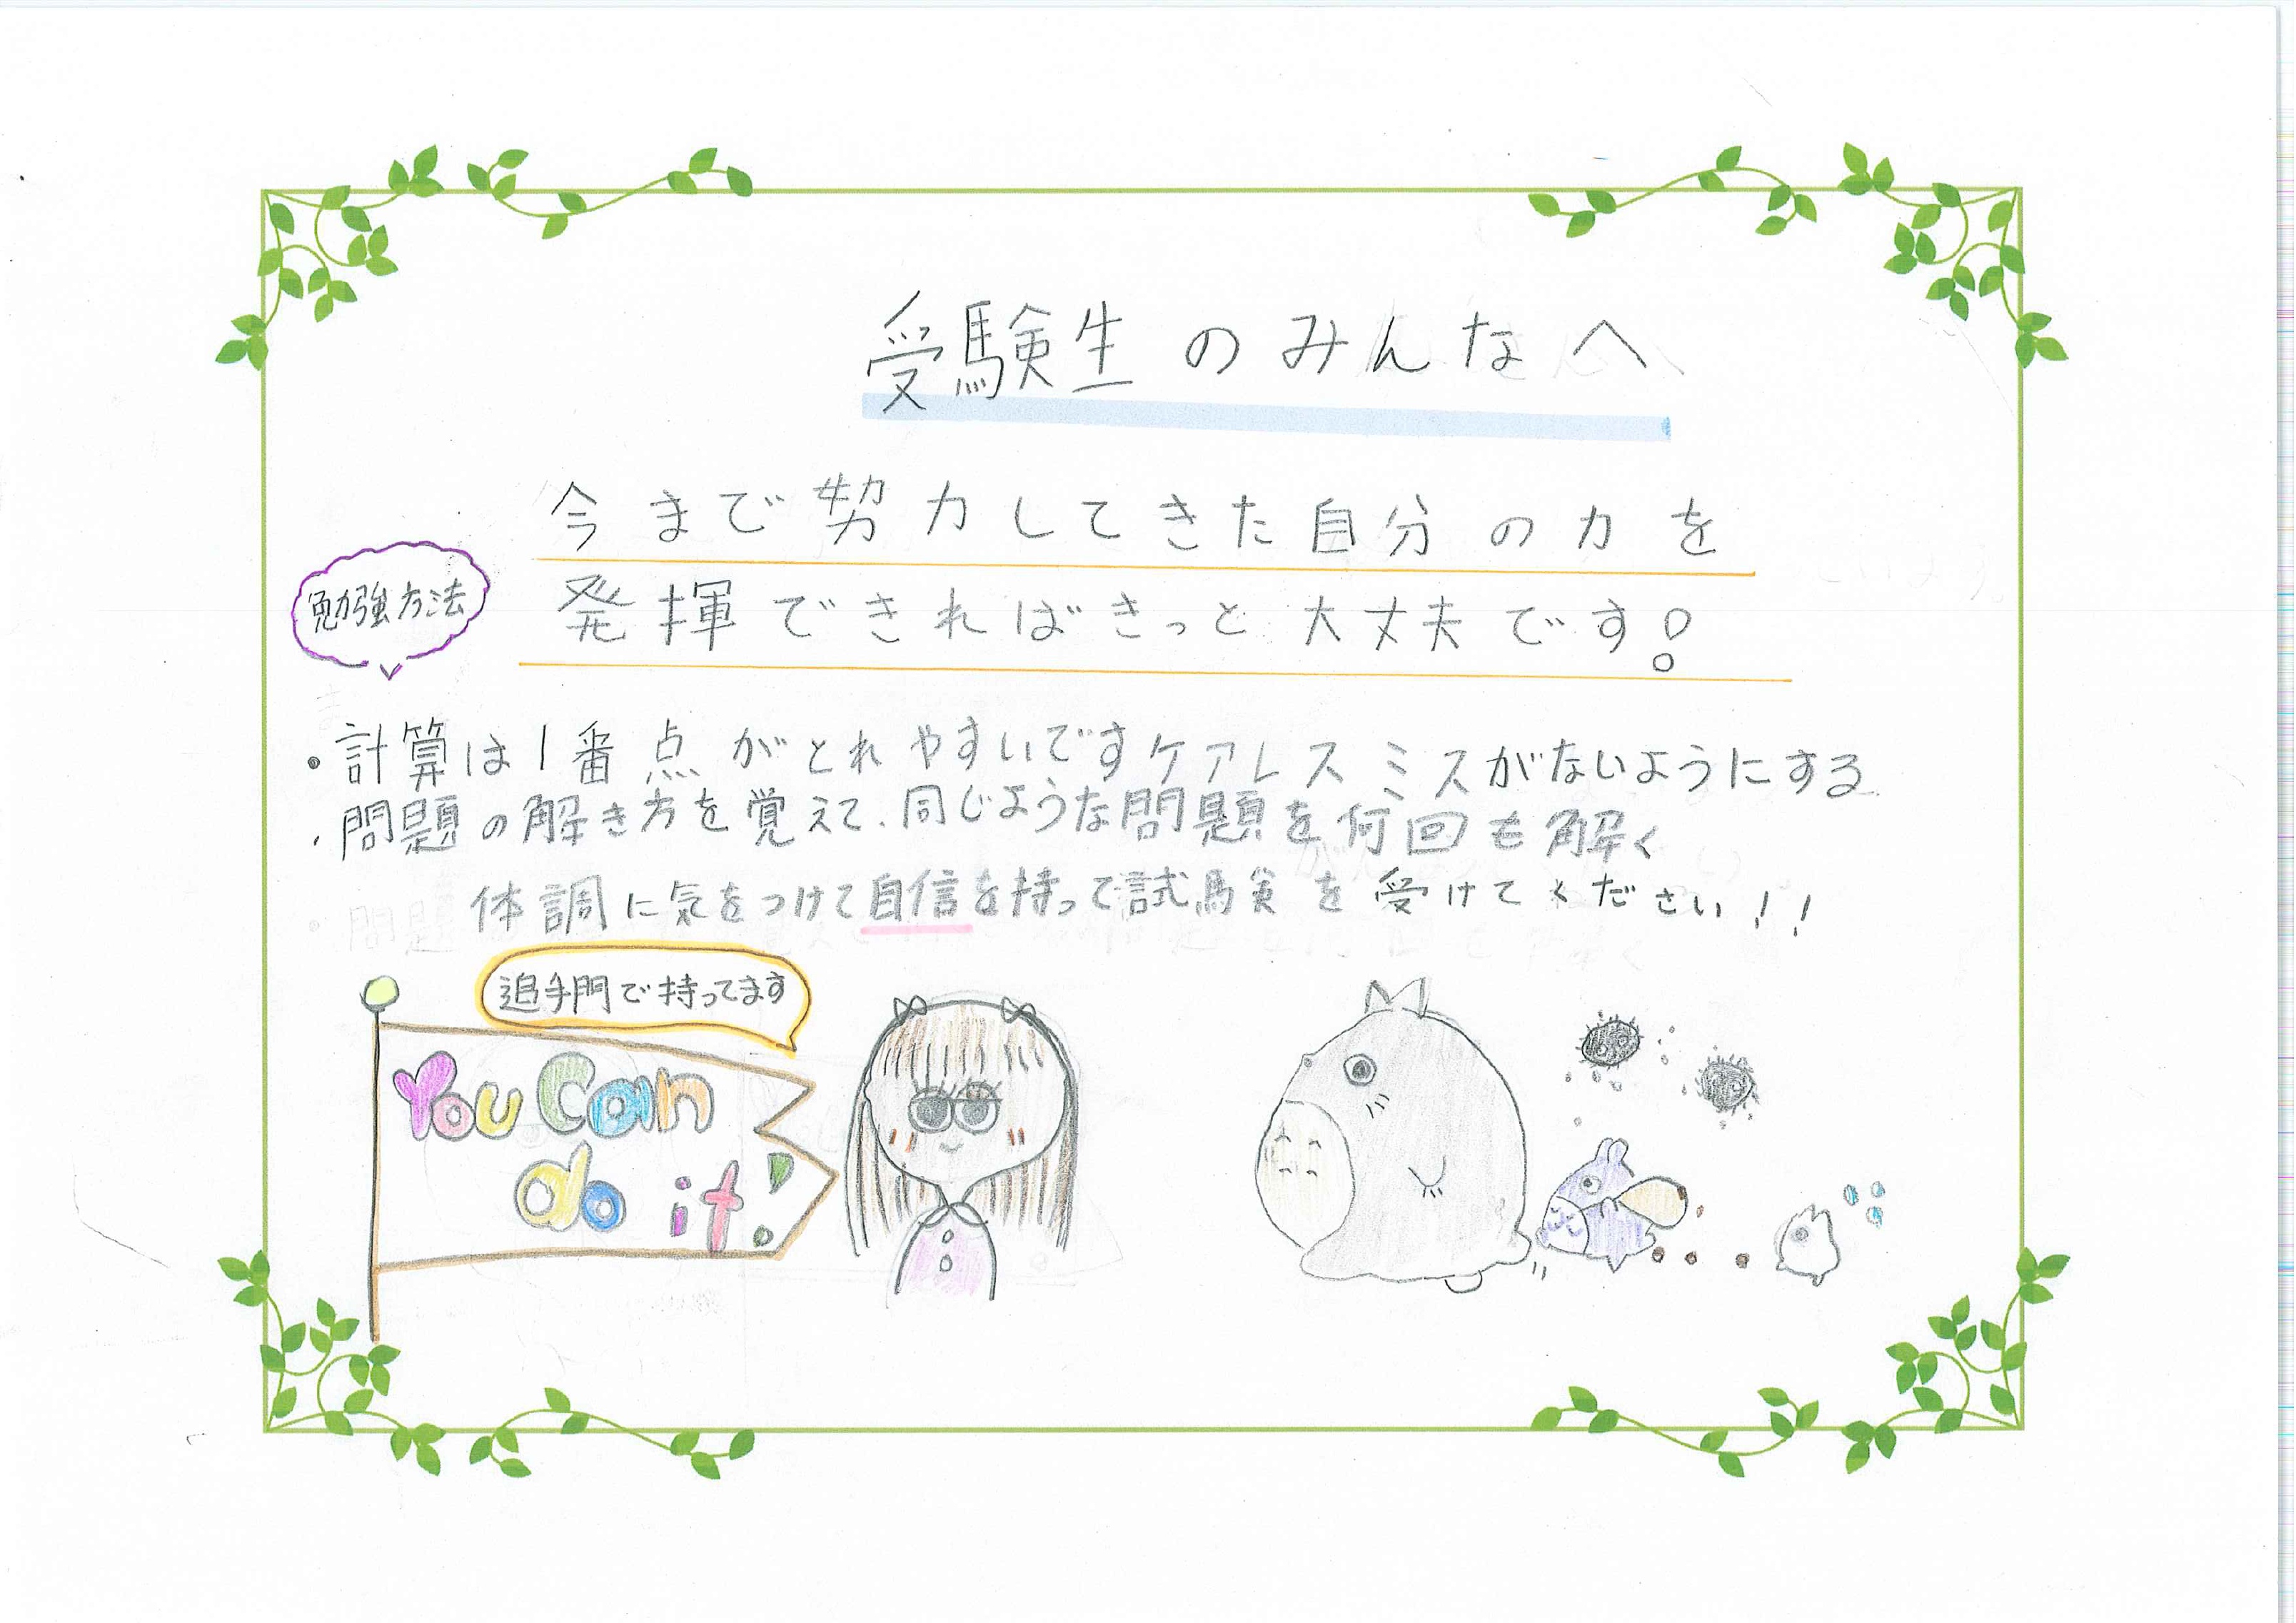 受験生のみんなへ
今まで努力してきた自分の力を
発揮できればきっと大丈夫です!
勉強方法
・計算は1番点がとれやすいですケアレスミスがないようにする
・問題の解き方を覚えて、同じような問題を何回も解く
体調に気をつけて自信を持って試験を受けてください!!
追手門で持ってます
You Can
do it!